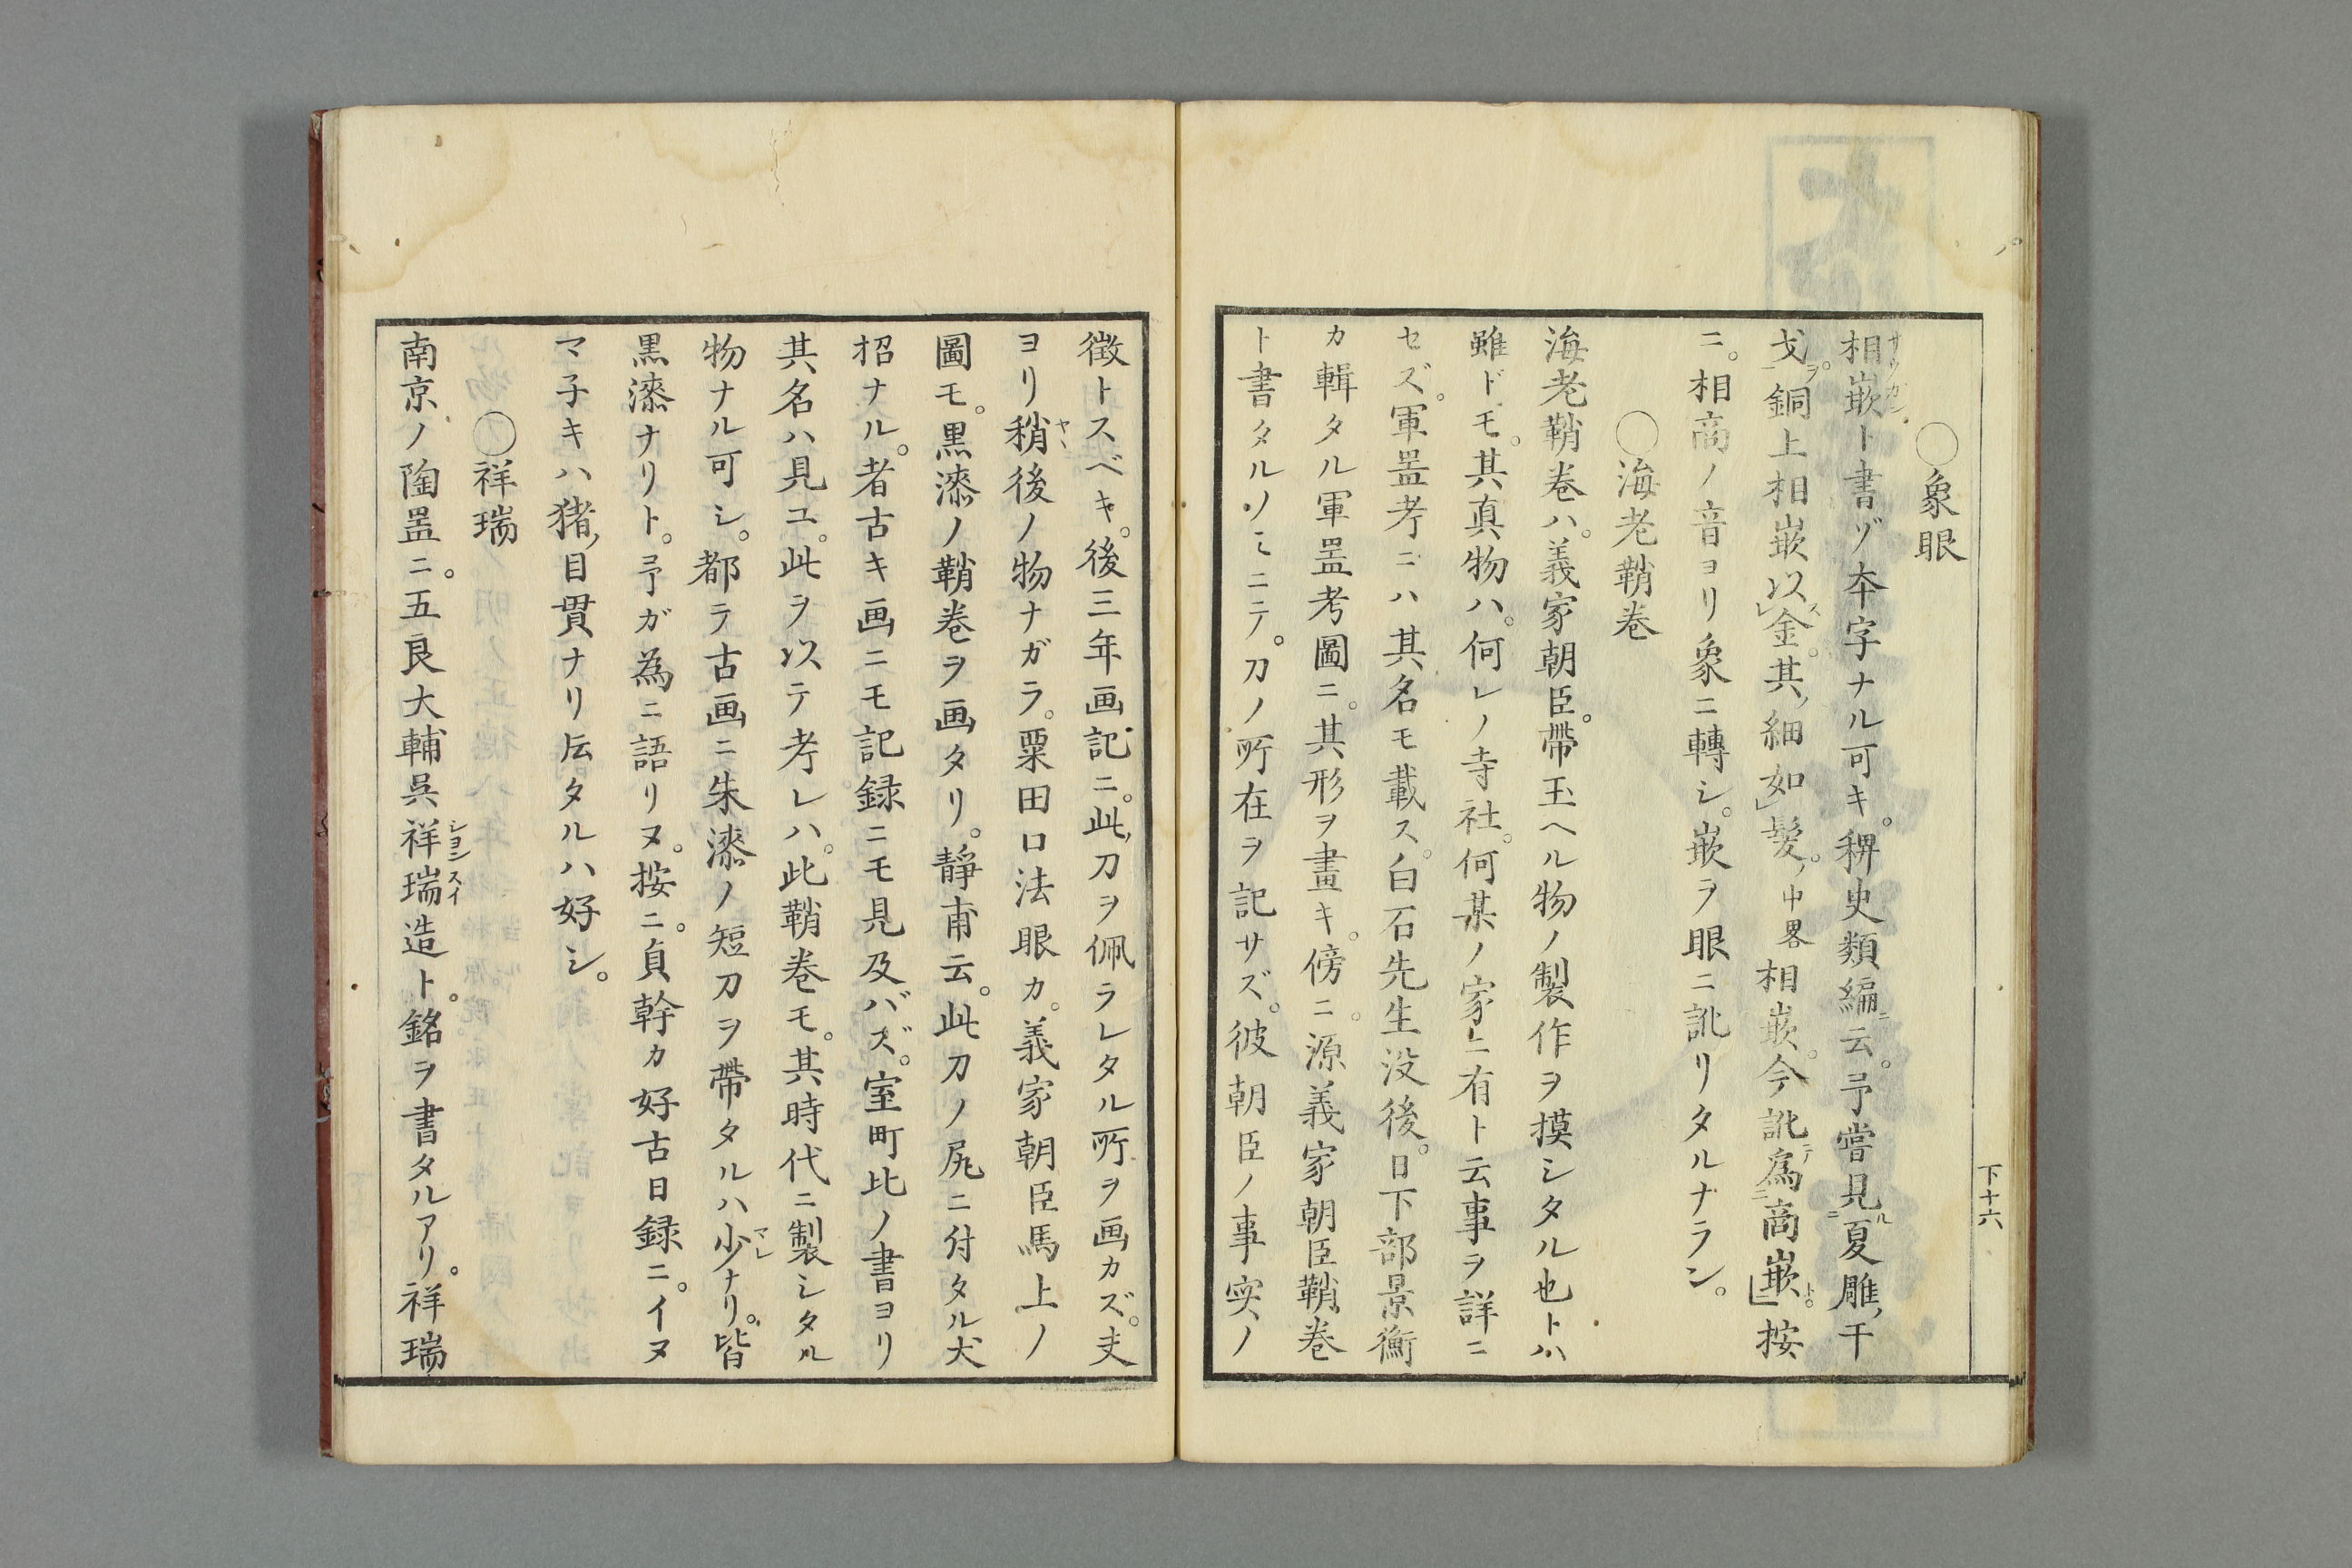 下十六
○象眼
相嵌ト書ヅ本字ナル可キ。稗史類編ニ云。予嘗見ル夏雕干
戈ヲ。銅上相嵌以ス金。其細如髮。中畧相嵌。今訛テ為商嵌ト。按
ニ。相商ノ音ヨリ象ニ轉シ。嵌ヲ眼ニ訛リタルナラン。
○海老鞘巻
海老鞘巻ハ。義家朝臣。帶玉ヘル物ノ製作ヲ摸シタル也トハ
雖ドモ。其真物ハ。何レノ寺社。何某ノ家ニ有ト云事ヲ詳ニ
セズ。軍噐考ニハ其名モ載ス。白石先生没後。日下部景衡
カ輯タル軍噐考圖ニ。其形ヲ畫キ。傍ニ。源義家朝臣鞘巻
ト書タルノミニテ。刀ノ所在ヲ記サズ。彼朝臣ノ事実ノ
徴トスベキ。後三年画記ニ。此刀ヲ佩ラレタル所ヲ画カズ。夫
ヨリ稍後ノ物ナガラ。粟田口法眼カ。義家朝臣馬上ノ
圖モ。黒漆ノ鞘巻ヲ画タリ。静甫云。此刀ノ尻ニ付タル犬
招ナル。者古キ画ニモ記録ニモ見及バズ。室町比ノ書ヨリ
其名ハ見ユ。此ヲ以テ考レハ。此鞘巻モ。其時代ニ製シタル
物ナル可シ。都テ古画ニ朱漆ノ短刀ヲ帶タルハ少ナリ。皆
黒漆ナリト。予ガ為ニ語リヌ。按ニ。貞幹カ好古日録ニ。イヌ
マ子キハ猪目貫ナリ伝タルハ好シ。
○祥瑞
南京ノ陶噐ニ。五良大輔呉祥瑞造ト。銘ヲ書タルアリ。祥瑞